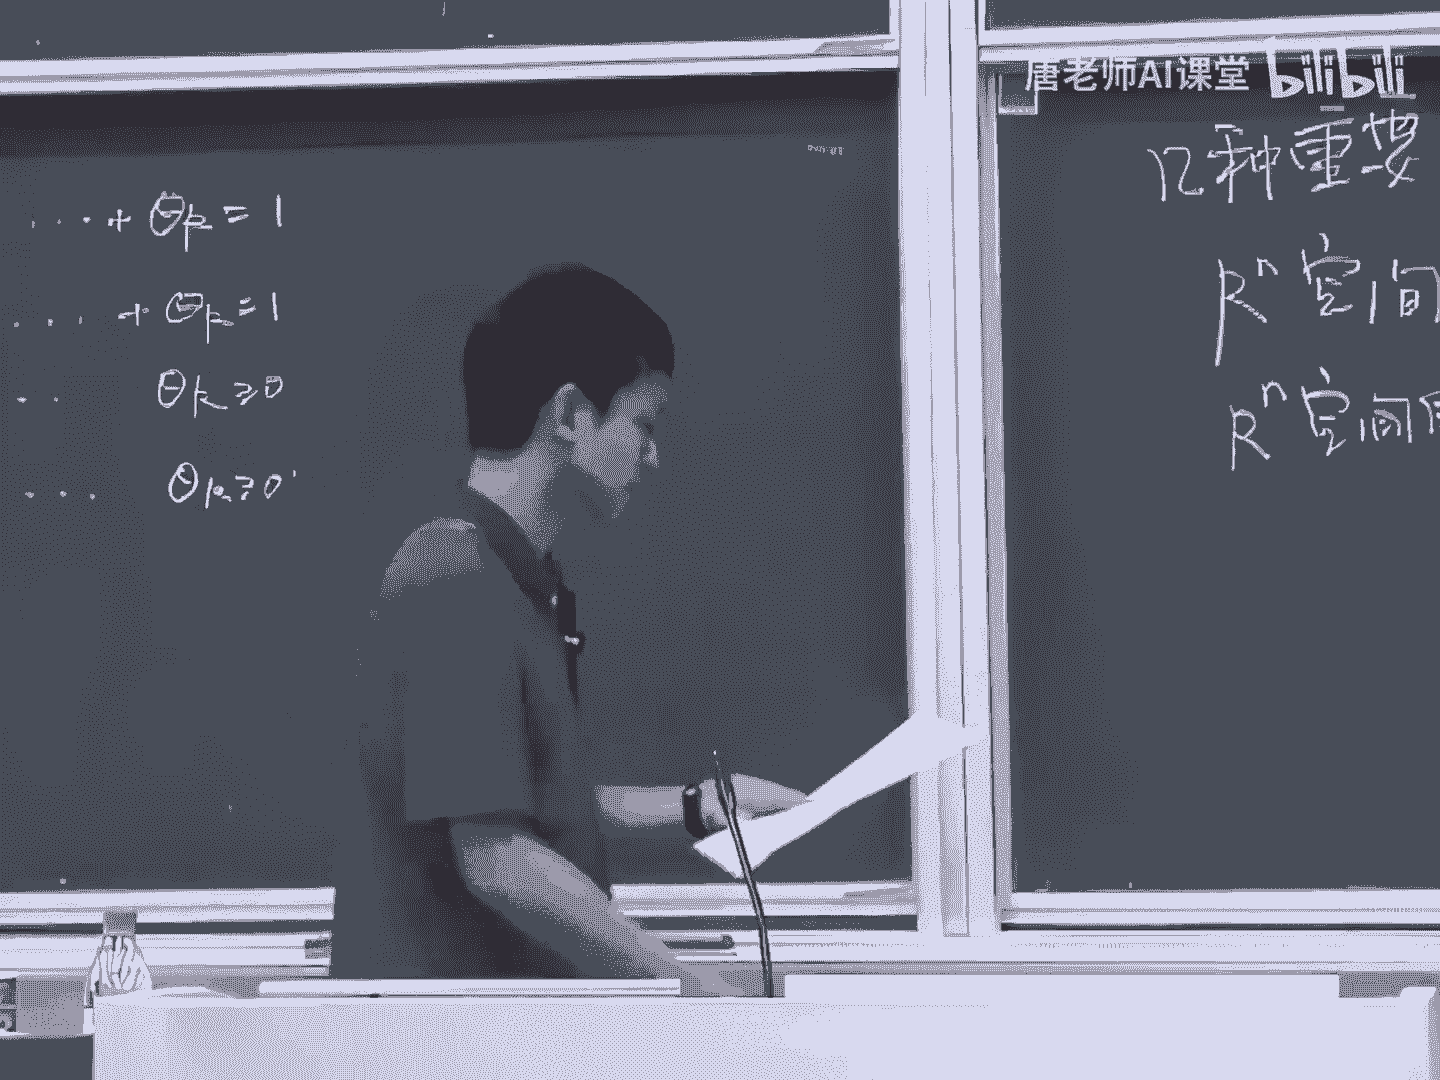 唐老师AI课堂 bilibili
···+ θk = 1
···+ θk = 1
·· θk ≥ 0
··· θk ≥ 0
几种重要
Rⁿ 空间
Rⁿ 空间